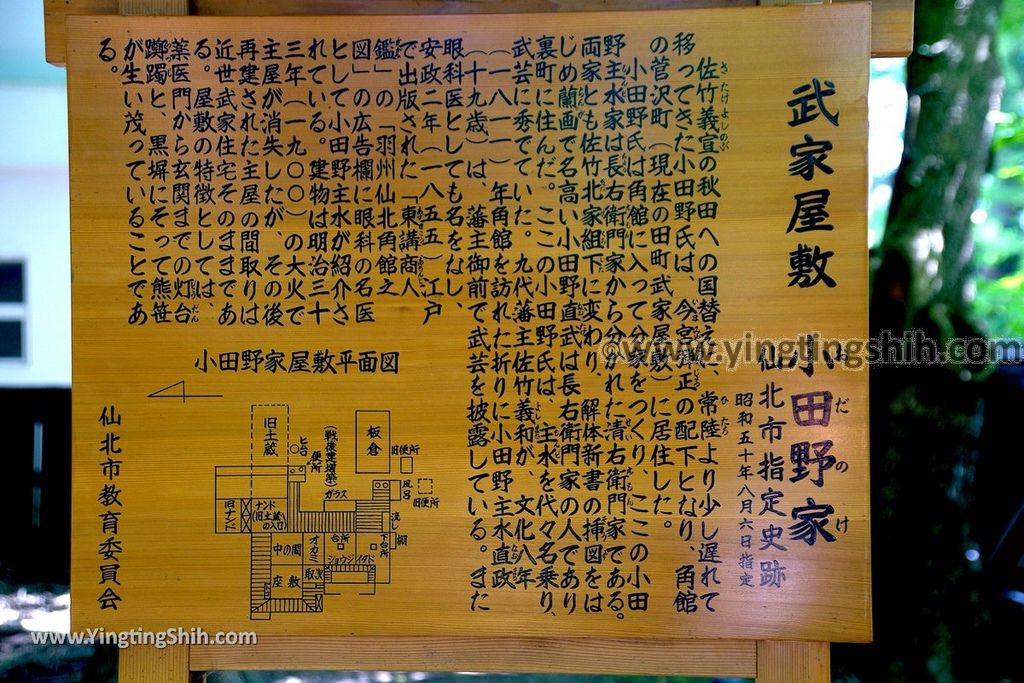 武家屋敷 小田野家
おだのけ
仙北市指定史跡
昭和五十年八月六日指定
佐竹義宣の秋田への国替えに、常陸より少し遅れて
移ってきた小田野氏は、今宮弾正の配下となり、角館
の菅沢町(現在の田町武家屋敷)に居住した。
小田野氏は角館に入って分家をつくり、ここの小田
野主水家は長右衛門家から分かれた清右衛門家である。
両家とも佐竹北家組下に変わり、解体新書の挿図をは
じめ蘭画で名高い小田野直武は長右衛門家の人であり
裏町に住んだ。ここの小田野氏は、主水を代々名乗り、
武芸に秀でていた。九代藩主佐竹義和が、文化八年
(一八一一)年角館を訪れた折りに小田野主水直政
(十九歳)は、藩主御前で武芸を披露している。また
眼科医としても名をなし、
安政二年(一八五五)江戸
で出版された「東講商人
鑑」の「羽州仙北角館之
図」の広告欄に眼科の名医
として小田野主水が紹介さ
れている。建物は明治三十
三年(一九〇〇)の大火で
主屋が消失したが、その後
再建された主屋の間取りは
近世武家住宅そのままであ
る。屋敷の特徴としては、
薬医門から玄関までの灯台
躑躅と、黒塀にそって熊笹
が生い茂っていることであ
る。
小田野家屋敷平面図
旧土蔵
ヒ台
便所
(戦後建増築)
板倉
旧便所
風呂
旧便所
ガラス
旧ナンド
ナンド
(旧土蔵への入口)
流し
棚
中の間
オカミ
台所
下台所
ショウジ
イタド
座敷
取次
仙北市教育委員会
www.yingtingshih.com
www.YingtingShih.com